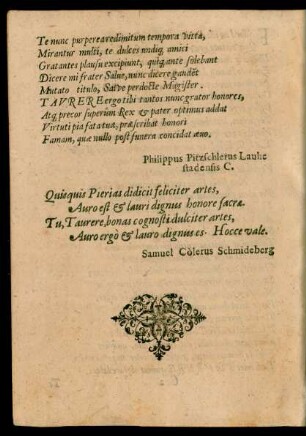 Te nunc purpurea redimitum tempora vitta,
Mirantur multi, te dulces undiq; amici
Gratantes plausu excipiunt, quiq; ante solebant
Dicere mi frater Salve, nunc dicere gaudēt
Mutato titulo, Salve perdocte Magister.
TAVRERE ergo tibi tantos nunc grator honores,
Atq; precor superûm Rex & pater optimus addat
Virtuti pia fata tuæ, præscribat honori
Famam, quæ nullo post funera concidat ævo.
Philippus Pitzschlerus Lauhe
stadensis C.
Quisquis Pierias didicit feliciter artes,
Auro est & lauri dignus honore sacræ.
Tu, Taurere, bonas cognosti dulciter artes,
Auro ergò & lauro dignus es. Hocce vale.
Samuel Cölerus Schmideberg